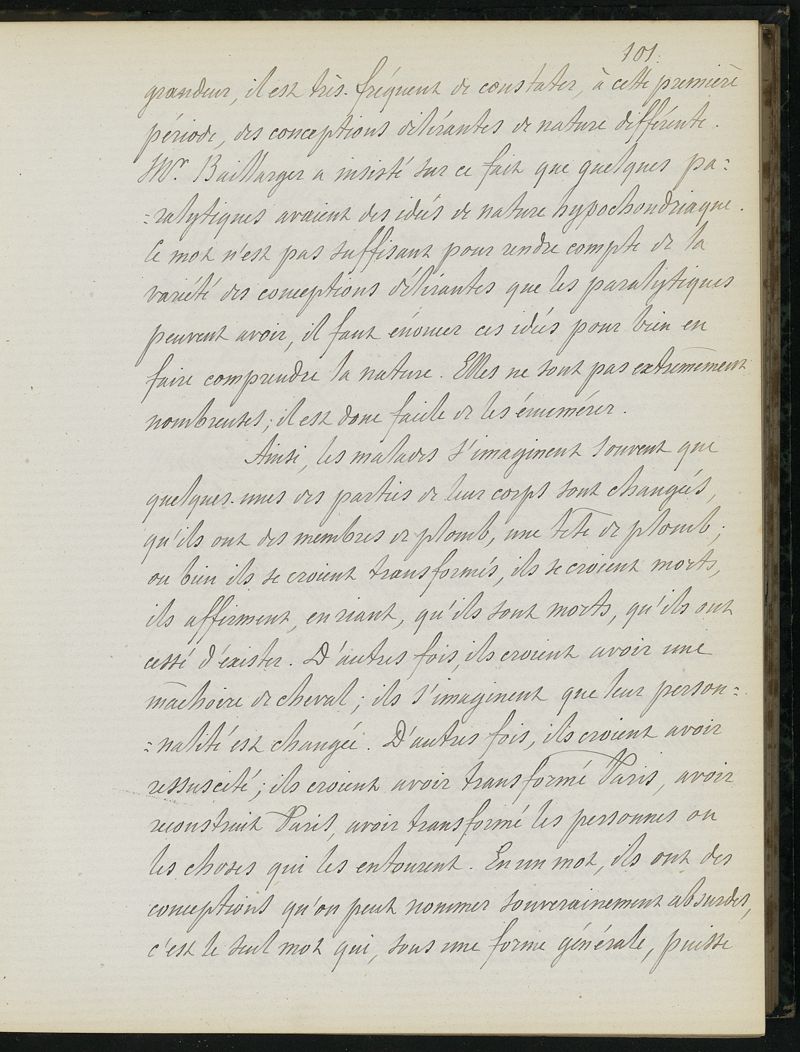 101.
grandeur, il est très-fréquent de constater, à cette première
période, des conceptions délirantes de nature différente.
Mr. Baillarger a insisté sur ce fait que quelques pa=
=ralytiques avaient des idées de nature hypochondriaque.
Ce mot n'est pas suffisant pour rendre compte de la
variété des conceptions délirantes que les paralytiques
peuvent avoir, il faut énoncer ces idées pour bien en
faire comprendre la nature. Elles ne sont pas extrêmement
nombreuses; il est donc facile de les énumérer.
Ainsi, les malades s'imaginent souvent que
quelques-unes des parties de leur corps sont changées,
qu'ils ont des membres de plomb, une tête de plomb;
ou bien ils se croient transformés, ils se croient morts,
ils affirment, en riant, qu'ils sont morts, qu'ils ont
cessé d'exister. D'autres fois, ils croient avoir une
mâchoire de cheval; ils s'imaginent que leur person=
=nalité est changée. D'autres fois, ils croient avoir
ressuscité; ils croient avoir transformé Paris, avoir
reconstruit Paris, avoir transformé les personnes ou
les choses qui les entourent. En un mot, ils ont des
conceptions qu'on peut nommer souverainement absurdes,
c'est le seul mot qui, sous une forme générale, puisse